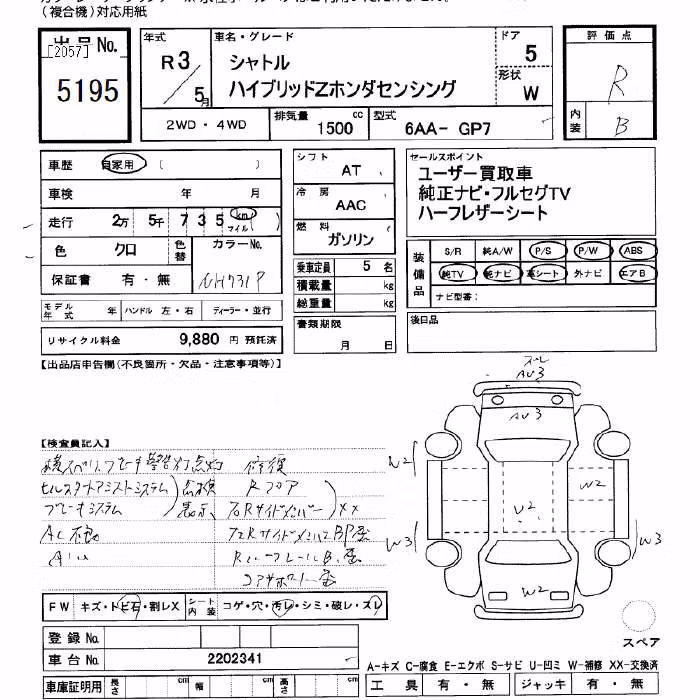 (複合機)対応用紙
出品No.
[2057]
5195
年式
R3/5月
車名・グレード
シャトル
ハイブリッドZホンダセンシング
ドア
5
形状
W
評価点
R
内装
B
2WD・4WD
排気量
1500 cc
型式
6AA- GP7
車歴
自家用 ( )
車検 年 月
走行 2万 5千 7 3 5 km マイル ( )
色 クロ
色替
カラーNo.
NH731P
保証書 有・無
モデル年式 年
ハンドル 左・右
ディーラー・並行
リサイクル料金 9,880 円 預託済
シフト
AT
冷房
AAC
燃料
ガソリン
乗車定員 5 名
積載量 kg
総重量 kg
書類期限
月 日
セールスポイント
ユーザー買取車
純正ナビ・フルセグTV
ハーフレザーシート
装備品
S/R 純A/W P/S P/W ABS
純TV 純ナビ 革シート 外ナビ エアB
ナビ型番:
後日品
【出品店申告欄(不良箇所・欠品・注意事項等)】
AU3
AU3
W2
W3
W2
U2
W3
W2
【検査員記入】
点灯 修復
ヒルスタートアシストシステム
Rフロア
ブレーキシステム
表示、
XX
FW キズ・トビ石・割レX
シート内装 コゲ・穴・汚レ・シミ・破レ・スレ
登録 No.
車台 No. 2202341
車庫証明用 長さ cm 幅 cm 高さ cm
スペア
A-キズ C-腐食 E-エクボ S-サビ U-凹ミ W-補修 XX-交換済
工具 有・無
ジャッキ 有・無